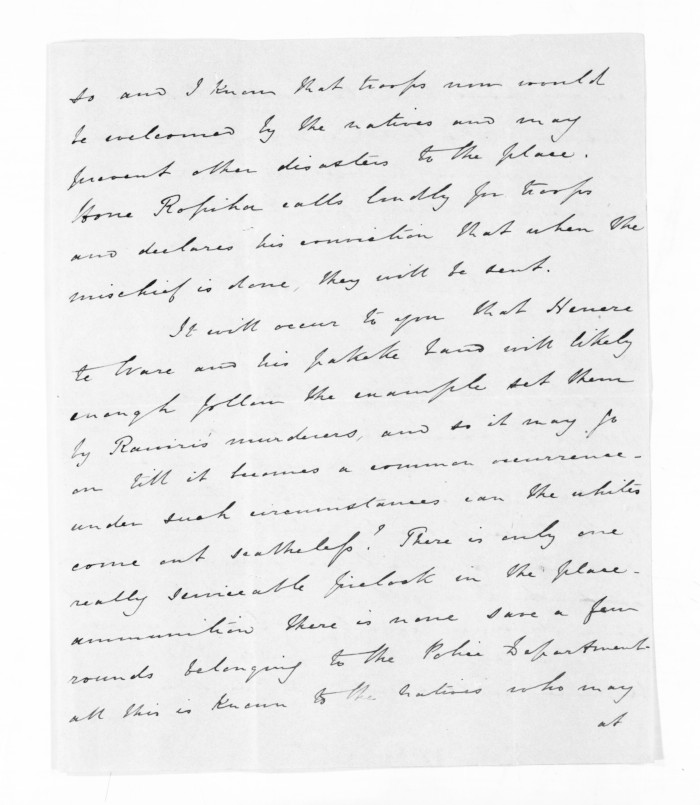 so and I know that troops now would
be welcomed by the natives and may
prevent other disasters to the place.
Hone Ropiha calls loudly for troops
and declares his conviction that when the
mischief is done, they will be sent.
It will occur to you that Henere
te Ware and his pakeke band will likely
enough follow the example set them
by Rawiri's murderers, and so it may go
on till it becomes a common occurrence -
under such circumstances can the whites
come out scatheless? There is only one
really serviceable firelock in the place -
ammunition there is none save a few
rounds belonging to the Police Department
all this is known to the natives who may
at